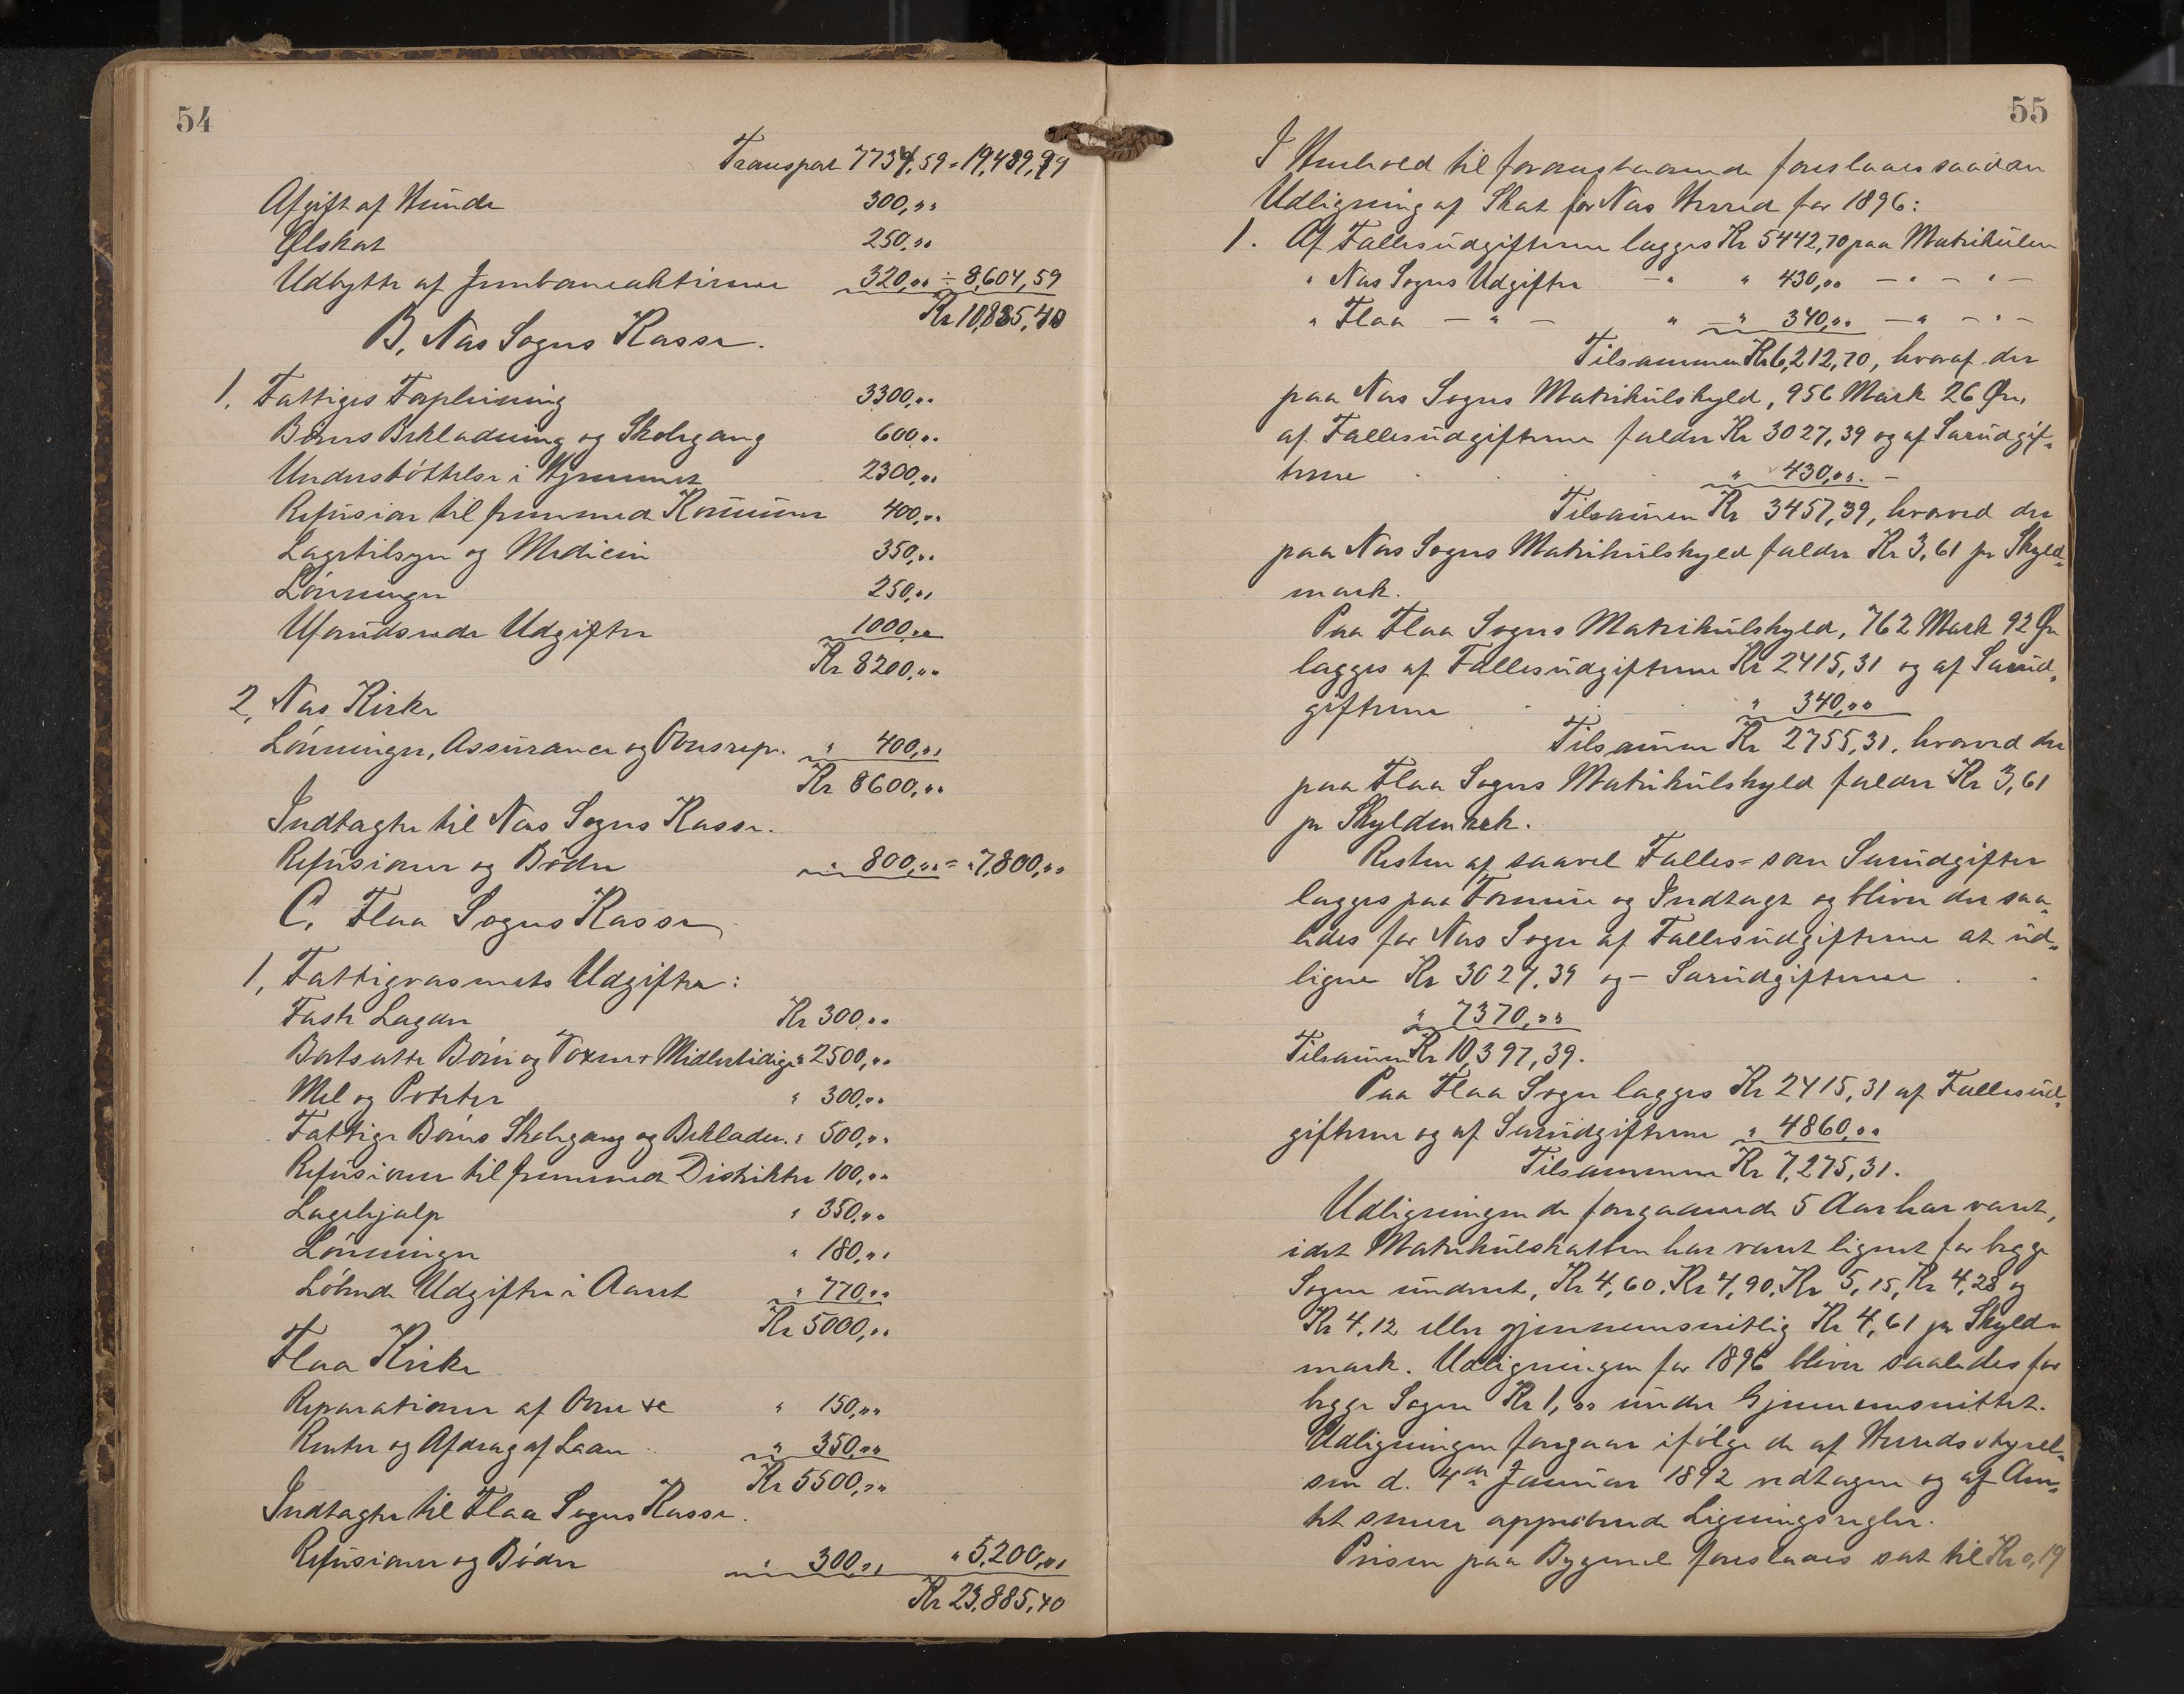 54
Transport 7734,59 = 19,489,99
Afgift af Hunde 300,"
Ølskat 250,"
Udbytte af Jernbaneaktierne 320," ÷ 8,604,59
Kr 10,885,40
B. Næs Sogns Kasse.
1. Fattiges Forpleining 3300,"
Børns Beklædning og Skolegang 600,"
Understøttelse i Hjemmet 2300,"
Refusion til fremmed Komune 400,"
Lægetilsyn og Medicin 350,"
Lønninger 250,"
Uforudsede Udgifter 1000,"
Kr 8200,"
2, Næs Kirke
Lønninger, Assurance og Ovnsrep. " 400,"
Kr 8600,"
Indtægter til Næs Sogns Kasse.
Refusioner og Bøder " 800," = "7,800,"
C. Flaa Sogns Kasse
1, Fattigvæsenets Udgifter:
Faste Lægder Kr 300,"
Bortsatte Børn og Voxne + Midlertidige " 2500,"
Mel og Poteter " 300,"
Fattige Børns Skolegang og Beklædn. " 500,"
Refusioner til fremmede Distrikter 100,"
Lægehjælp " 350,"
Lønninger " 180,"
Løbende Udgifter i Aaret " 770,"
Kr 5000,"
Flaa Kirke
Reparationer af Ovne &c " 150,"
Renter og Afdrag af Laan " 350,"
Kr 5500,"
Indtægter til Flaa Sogns Kasse.
Refusioner og Bøder " 300," " 5,200,"
Kr 23,885,40
55
I Henhold til foranstaaende foreslaaes saadan
Udligning af Skat for Næs Herred for 1896:
1. Af Fællesudgifterne lægges Kr 5442,70 paa Matrikulen
" Næs Sogns Udgifter — " " 430," — " — " —
" Flaa — " — " — " 340," — " — " —
Tilsammen Kr 6,212,70, hvoraf der
paa Næs Sogns Matrikulskyld, 956 Mark 26 Øre,
af Fællesudgifterne falder Kr 3027,39 og af Særudgif-
terne " 430,". —
Tilsamen Kr 3457,39, hvorved der
paa Næs Sogns Matrikulskyld falder Kr 3,61 pr Skyld-
mark.
Paa Flaa Sogns Matrikulskyld, 762 Mark 92 Øre
lægges af Fællesudgifterne Kr 2415,31 og af Særud-
gifterne " 340,"
Tilsamen Kr 2755,31, hvorved der
paa Flaa Sogns Matrikulskyld falder Kr 3,61
pr Skyldmark.
Resten af saavel Fælles= som Særudgifter
lægges paa Formue og Indtægt og bliver der saa-
ledes for Næs Sogn af Fællesudgifterne at ud-
ligne Kr 3027,39 og — Særudgifterne
" 7370,"
Tilsamen Kr 10,397,39.
Paa Flaa Sogn lægges Kr 2415,31 af Fællesud-
gifterne og af Særudgifterne " 4860,"
Tilsammen Kr 7,275,31.
Udligningen de foregaaende 5 Aar har været,
idet Matrikulskatten har været lignet for begge
Sogne underet, Kr 4,60, Kr 4,90, Kr 5,15, Kr 4,28 og
Kr 4,12 eller gjennemsnitlig Kr 4,61 pr Skyld-
mark. Udligningen for 1896 bliver saaledes for
begge Sogne Kr 1," under Gjennemsnittet.
Udligningen foregaar ifølge de af Herredsstyrel-
sen d. 4de Januar 1892 vedtagne og af Am-
tet senere approberede Ligningsregler.
Prisen paa Bygmel foreslaaes sat til Kr 0,19